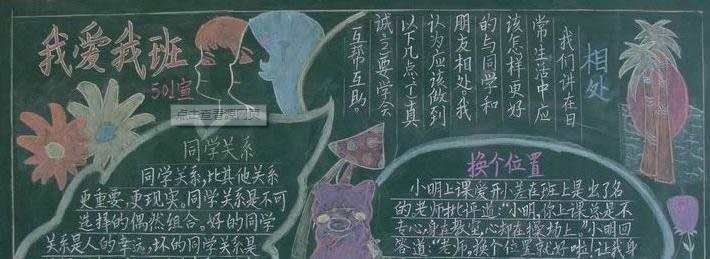 我爱我班
501宣
点击查看源网页
同学关系
同学关系,比其他关系
更重要,更现实。同学关系是不可
选择的偶然组合。好的同学
关系是人的幸运,坏的同学关系是
相处
我们讲在日
常生活中应
该怎样更好
的与同学和
朋友相处?我
认为应该做到
以下几点:真
诚;要学会
互帮互助。
换个位置
小明上课爱开小差在班上是出了名
的老师批评道:“小明,你上课总是不
专心,身在教室,心却在操场上。”小明回
答道:“老师,换个位置就好啦!让我身